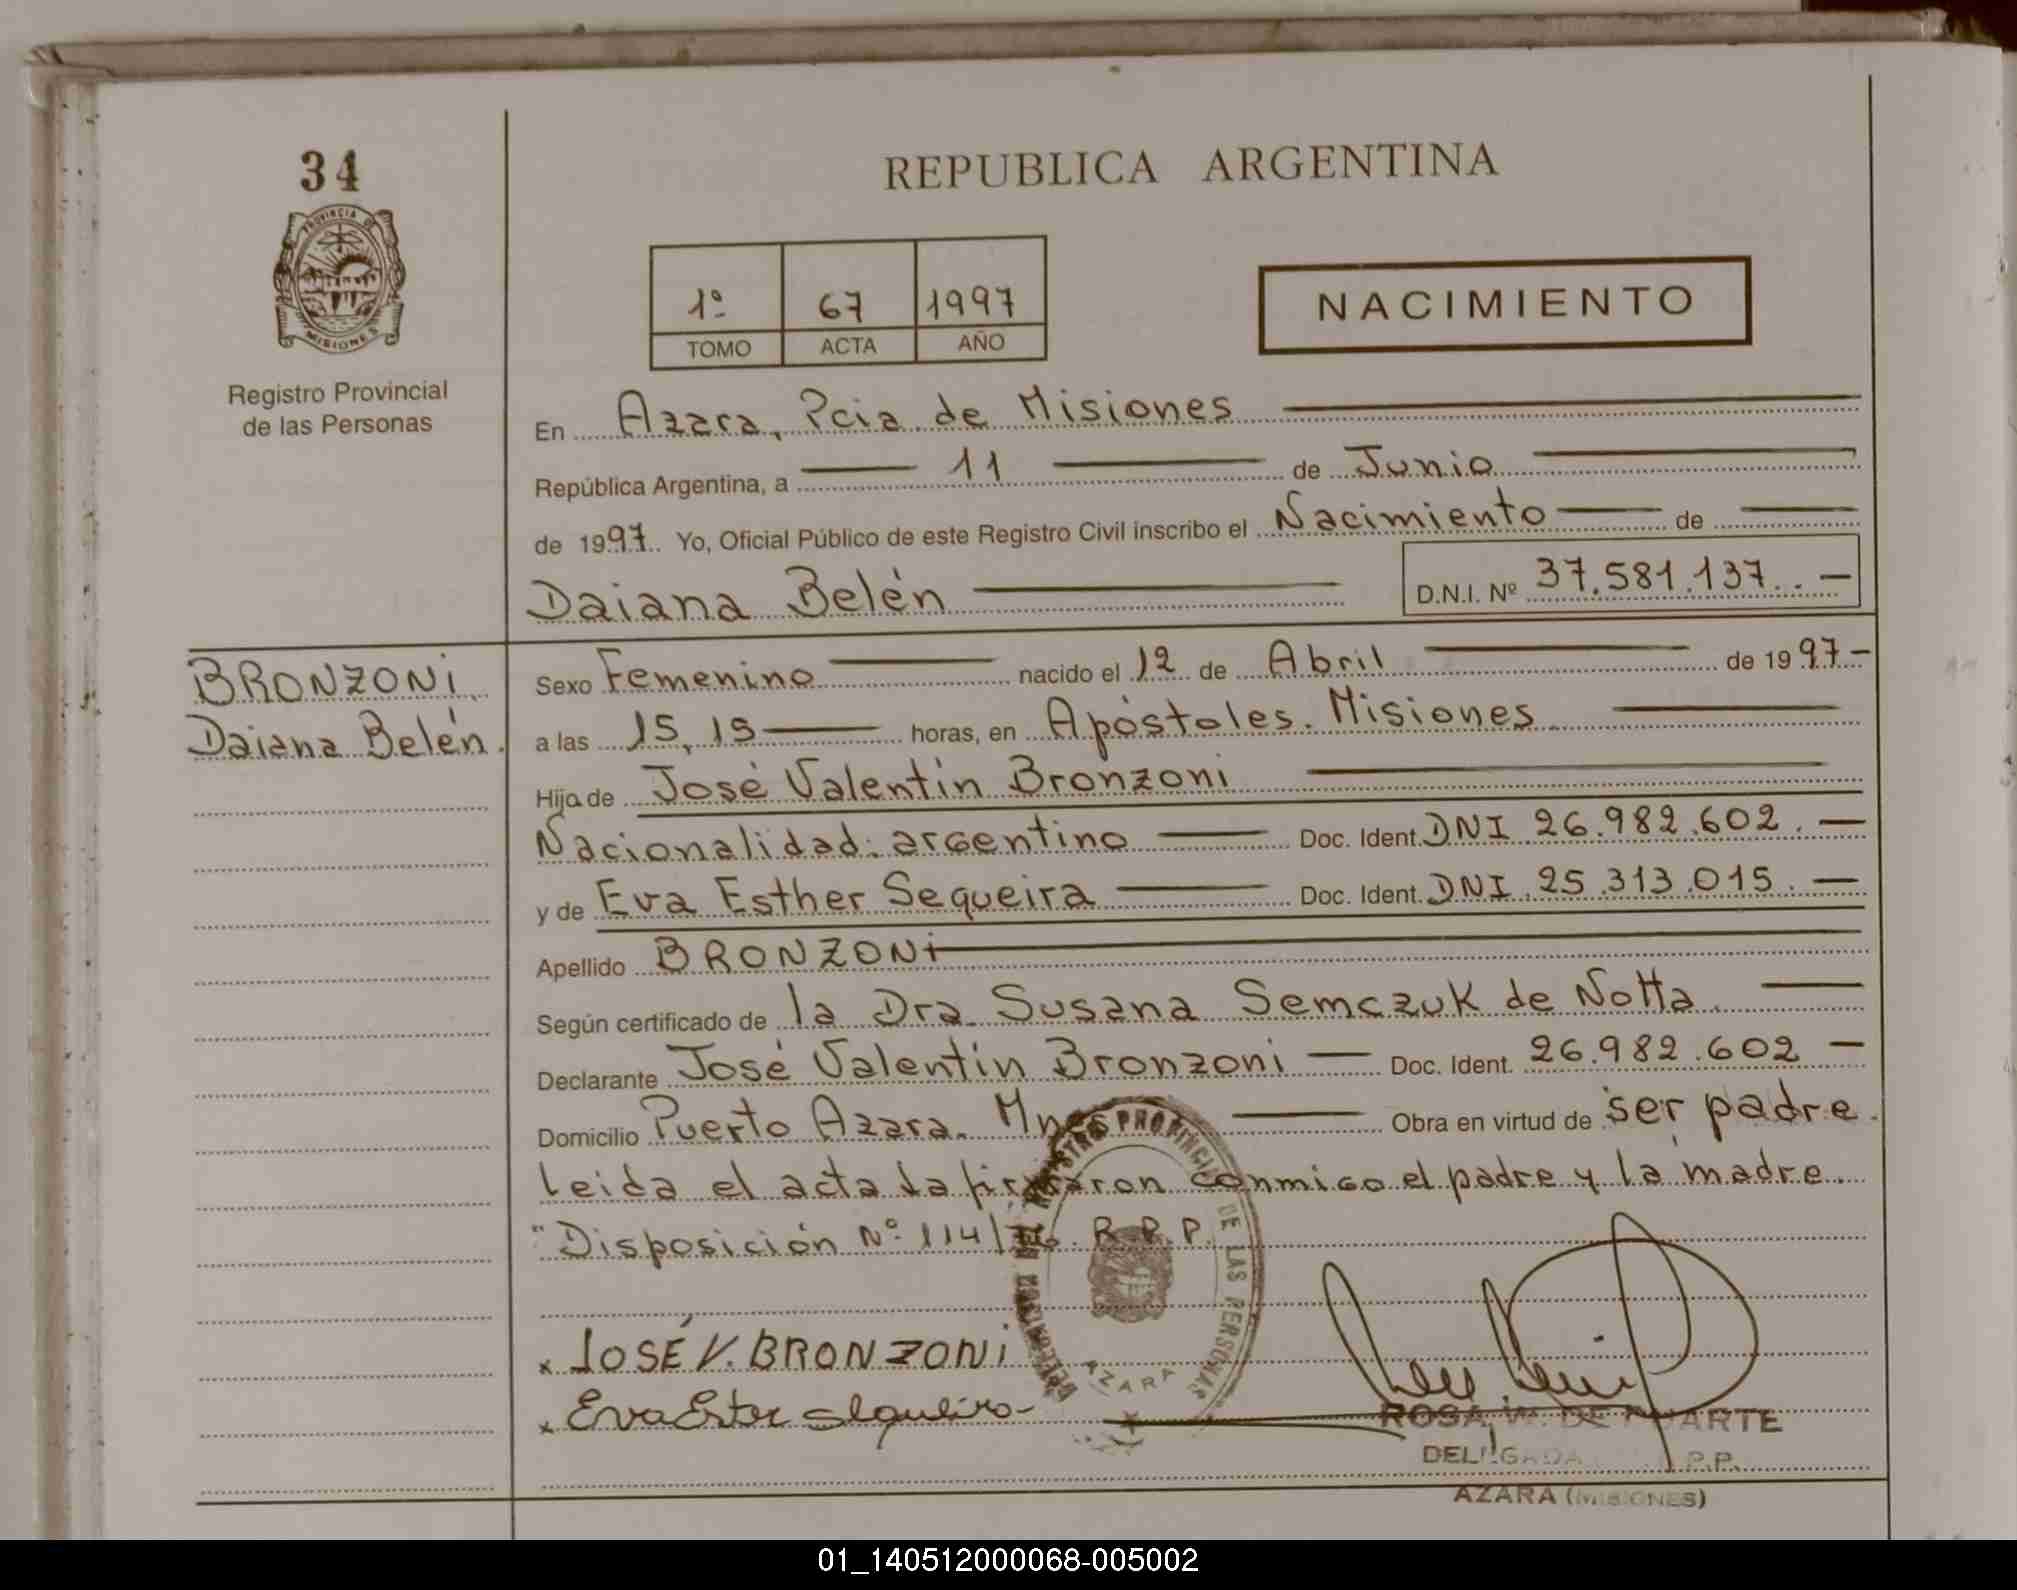 34
PROVINCIA DE
MISIONES
Registro Provincial
de las Personas
REPUBLICA ARGENTINA
1º 67 1997
TOMO ACTA AÑO
NACIMIENTO
En Azara, Pcia de Misiones
República Argentina, a 11 de Junio
de 1997. Yo, Oficial Público de este Registro Civil inscribo el Nacimiento de
Daiana Belén D.N.I. Nº 37.581.137.
BRONZONi
Daiana Belén.
Sexo Femenino nacido el 12 de Abril de 1997
a las 15,15 horas, en Apóstoles. Misiones
Hija de José Valentín Bronzoni
Nacionalidad: argentino Doc. Ident. DNI 26.982.602.
y de Eva Esther Sequeira Doc. Ident. DNI 25.313.015.
Apellido BRONZONi
Según certificado de la Dra. Susana Semczuk de Notta.
Declarante José Valentín Bronzoni Doc. Ident. 26.982.602
Domicilio Puerto Azara. Mnes Obra en virtud de ser padre.
Leida el acta la firmaron conmigo el padre y la madre.
"Disposición Nº 114/ R.P.P.
REGISTRO PROVINCIAL DE LAS PERSONAS
AZARA
x JOSÉ V. BRONZONi
x Eva Ester Sequeira
ROSA W. DE DUARTE
DELEGADA P.P.
AZARA (MISIONES)
01_140512000068-005002